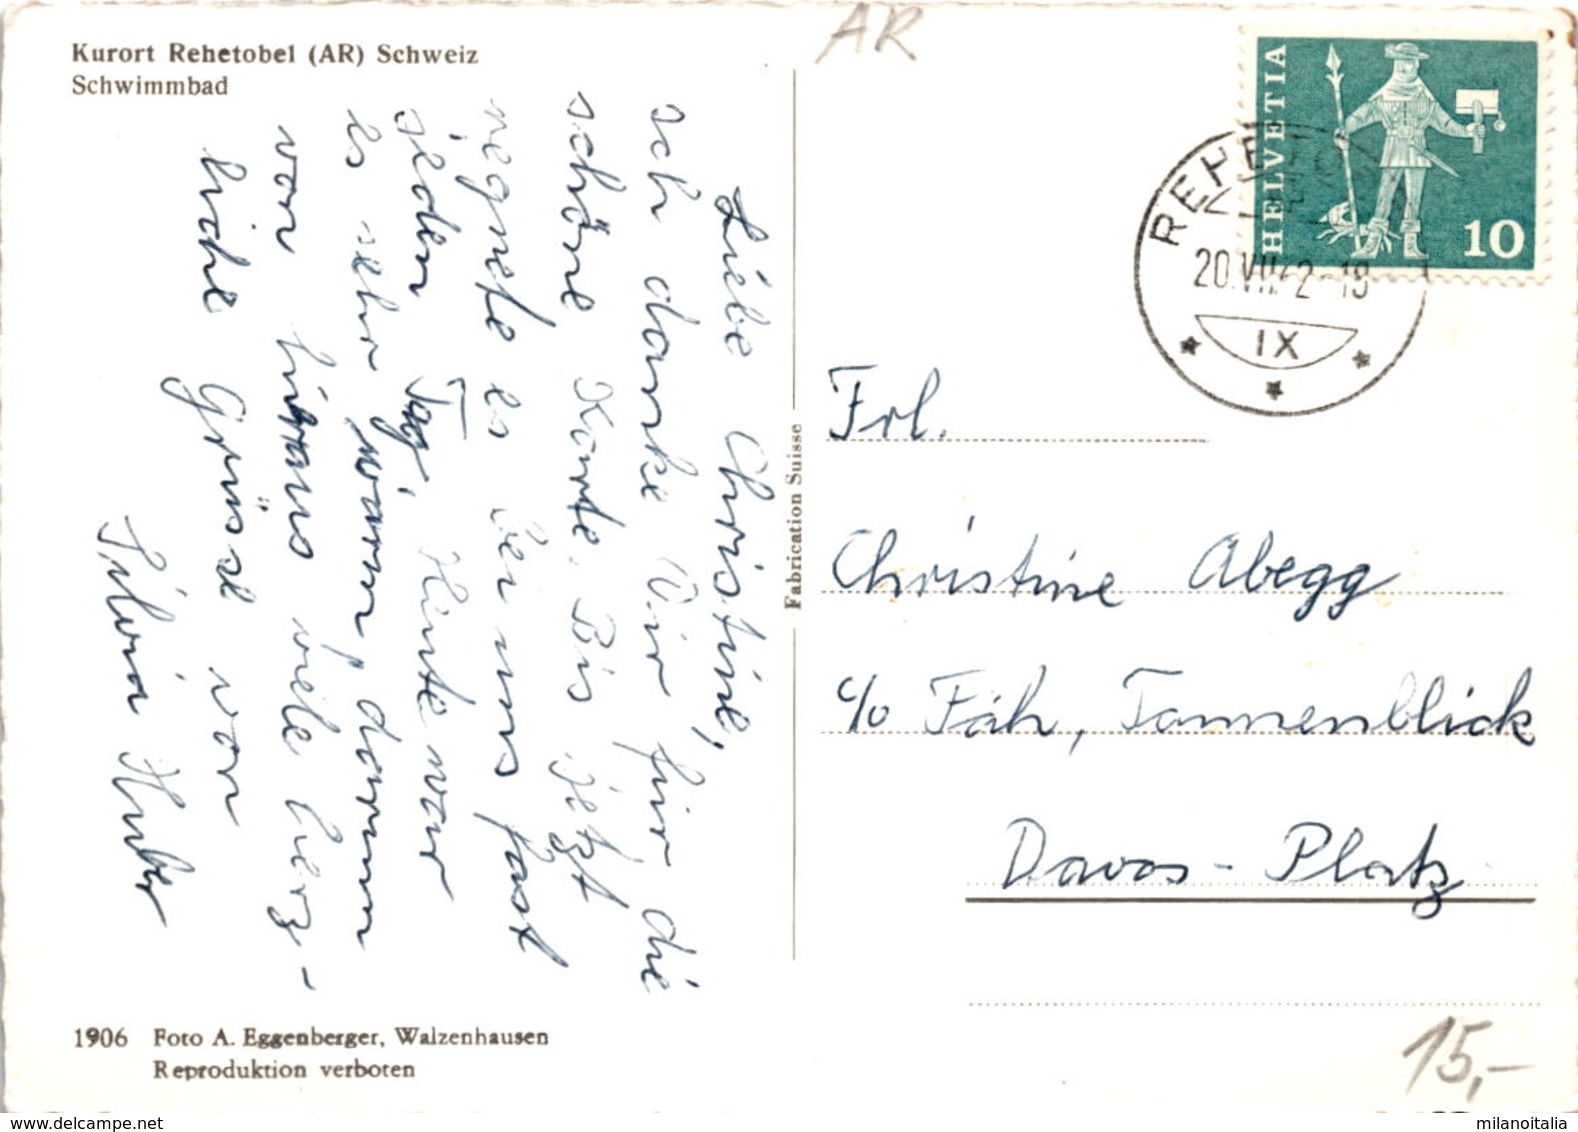 Kurort Rehetobel (AR) Schweiz
Schwimmbad
AR
Liebe Christine,
ich danke Dir für die
schöne Karte. Bis jetzt
regnete es bei uns fast
jeden Tag. Heute war
es sehr warm, darum
von hieraus viele herz-
liche Grüsse von
Silvia Huber
1906 Foto A. Eggenberger, Walzenhausen
Reproduktion verboten
Fabrication Suisse
HELVETIA
10
REHETO
20.VII.62-18
IX
Frl.
Christine Abegg
c/o Fäh, Tannenblick
Davos-Platz
15,-
milanoitalia
www.delcampe.net